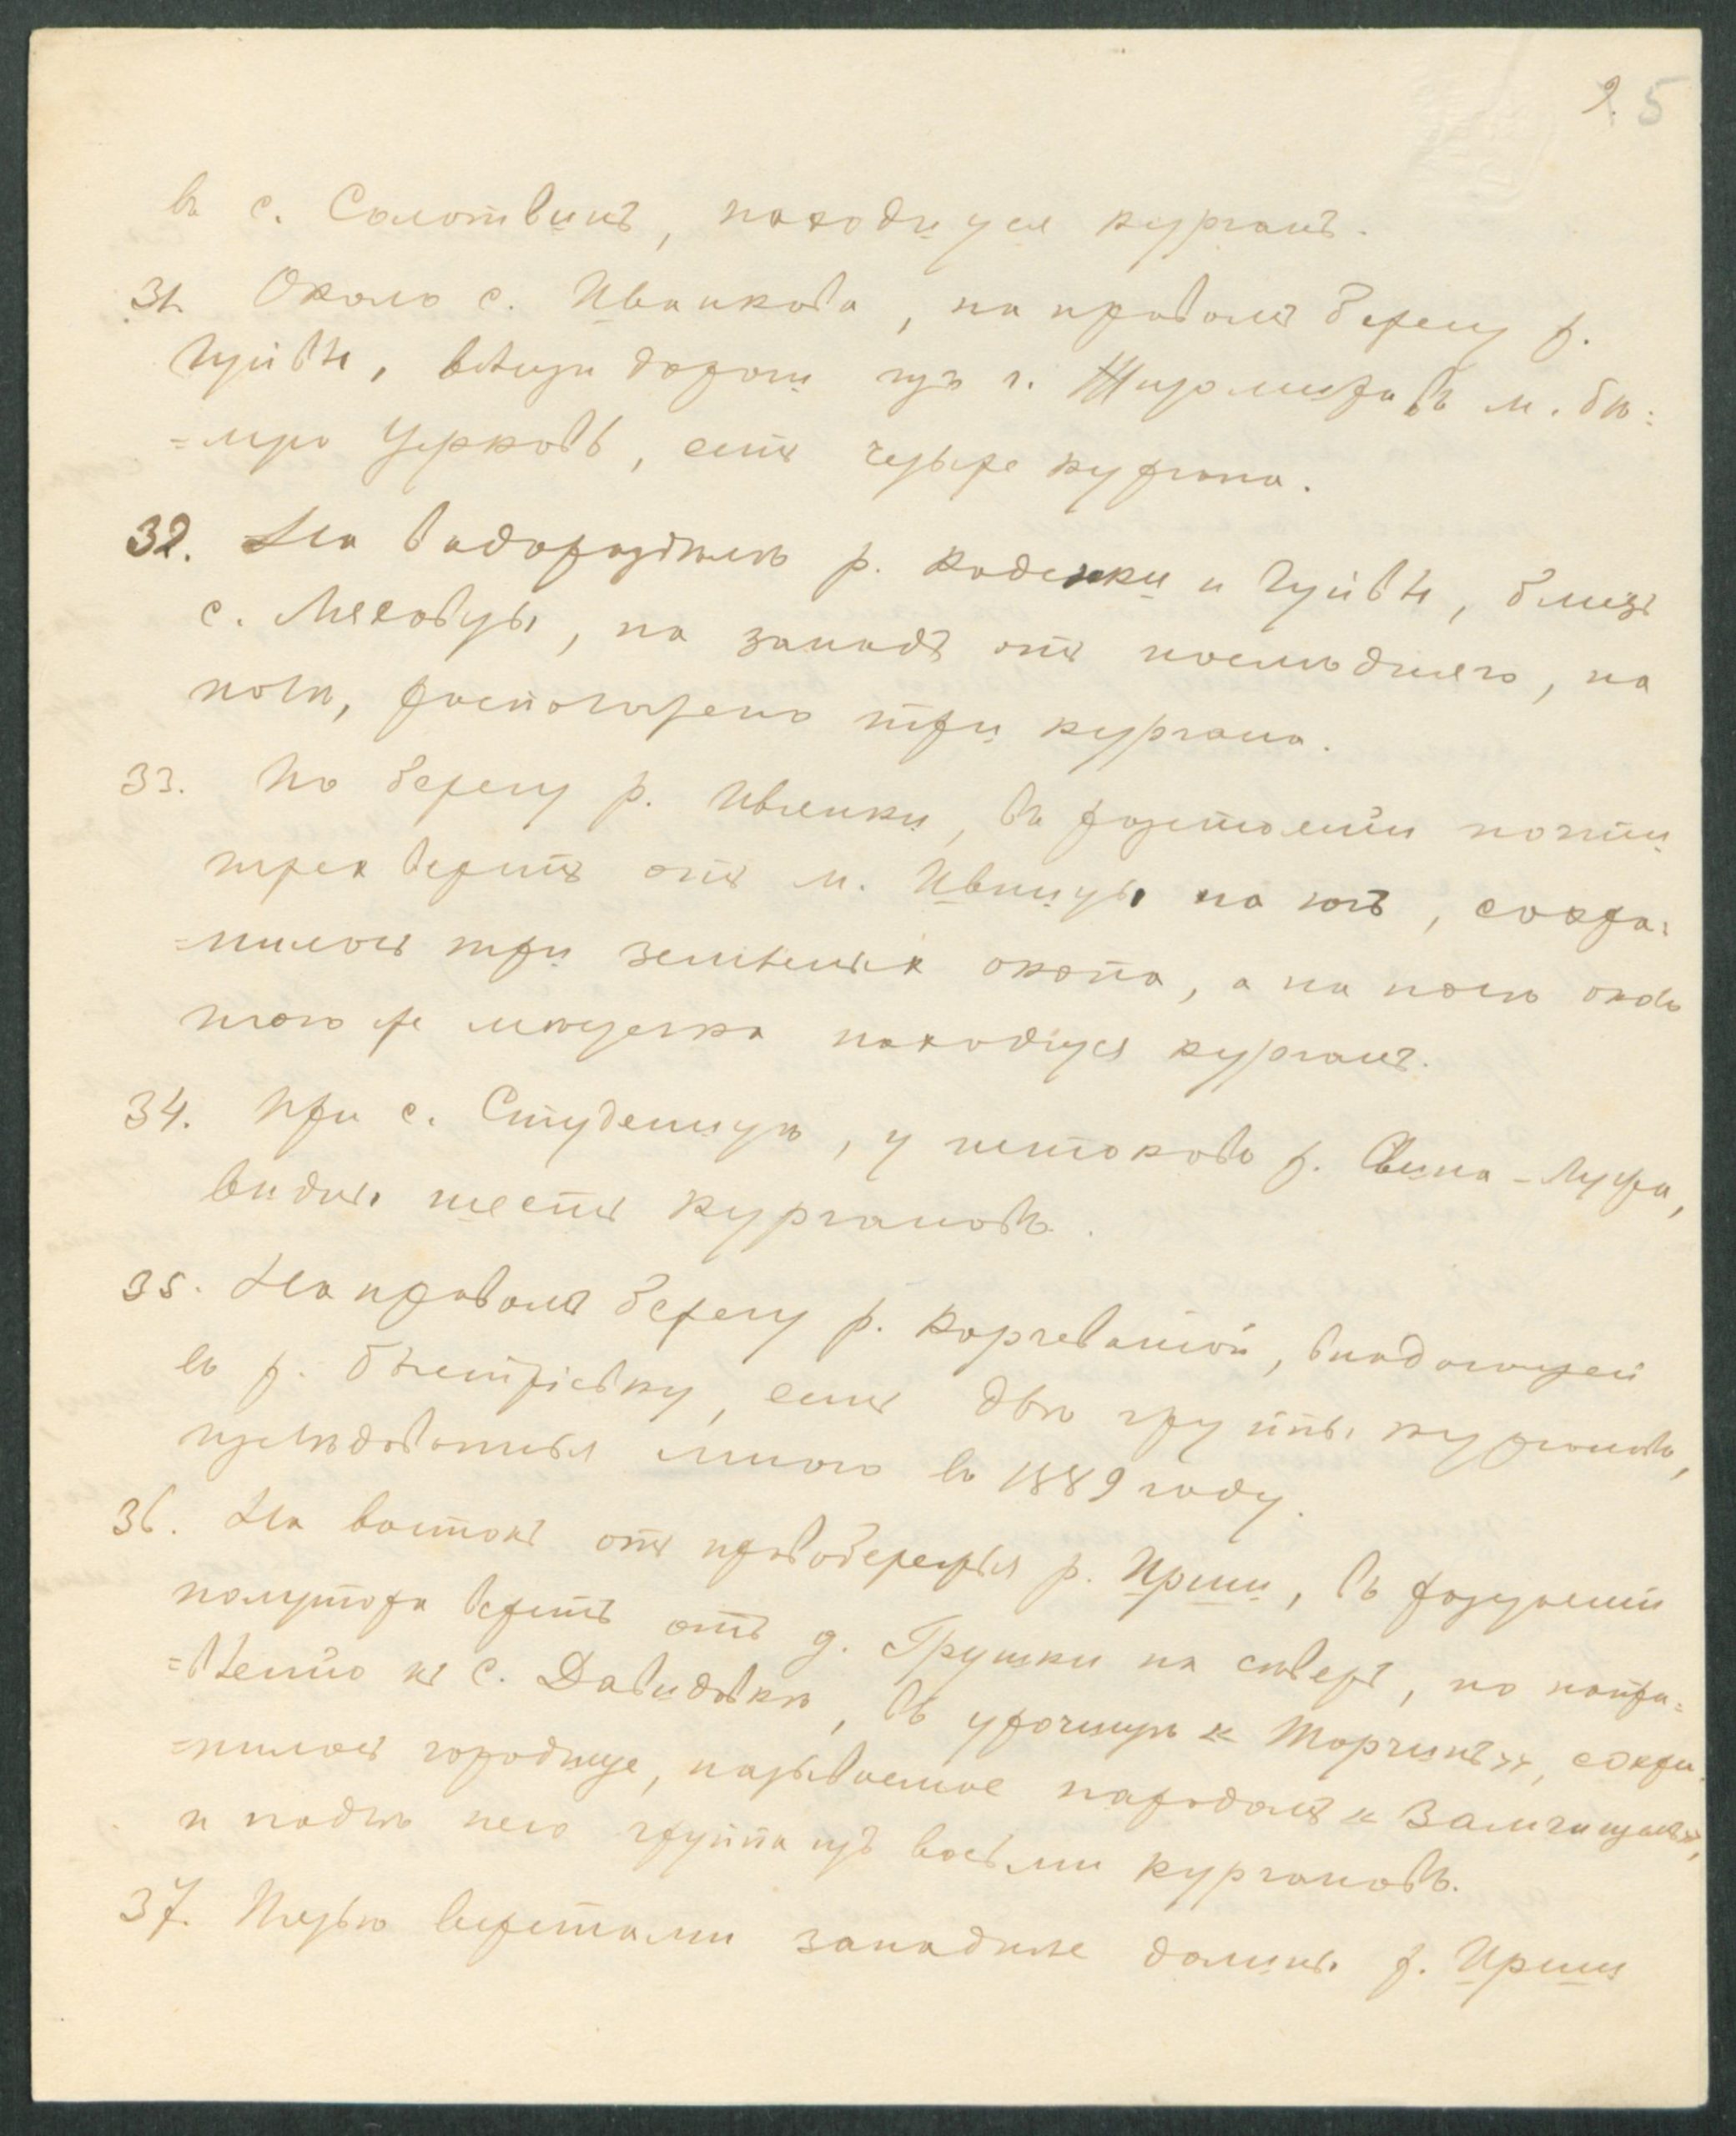 9. 5
въ с. Солотвинѣ, находится курганъ.
31. Около с. Иванкова, на правомъ берегу р.
Гуйвы, вблизи дороги изъ г. Житомира въ м. Бѣ=
=лую Церковь, есть четыре кургана.
32. На водораздѣлѣ р. Коденки и Гуйвы, близъ
с. Ляховцы, на западъ отъ послѣдняго, на
полѣ, расположено три кургана.
33. По берегу р. Ивянки, въ разстояніи почти
трех верстъ отъ м. Ивницы на югъ, сохра=
=нилось три земляных окопа, а на полѣ около
того же мѣстечка находится курганъ.
34. При с. Студеницѣ, у истоковъ р. Свина-Лужа,
видны шесть кургановъ.
35. На правомъ берегу р. Корчеватой, впадающей
въ р. Быстріевку, есть двѣ группы кургановъ,
изслѣдованныя мною въ 1889 году.
36. На востокъ отъ правобережья р. Ирши, въ разстояніи
полутора верстъ отъ д. Грушки на сѣверъ, по напра=
=вленію къ с. Давидовкѣ, въ урочищѣ «Торчинъ», сохра=
=нилось городище, называемое народомъ «Замчищемъ»,
и подлѣ него группа изъ восьми кургановъ.
37. Пятью верстами западнѣе долины р. Ирши